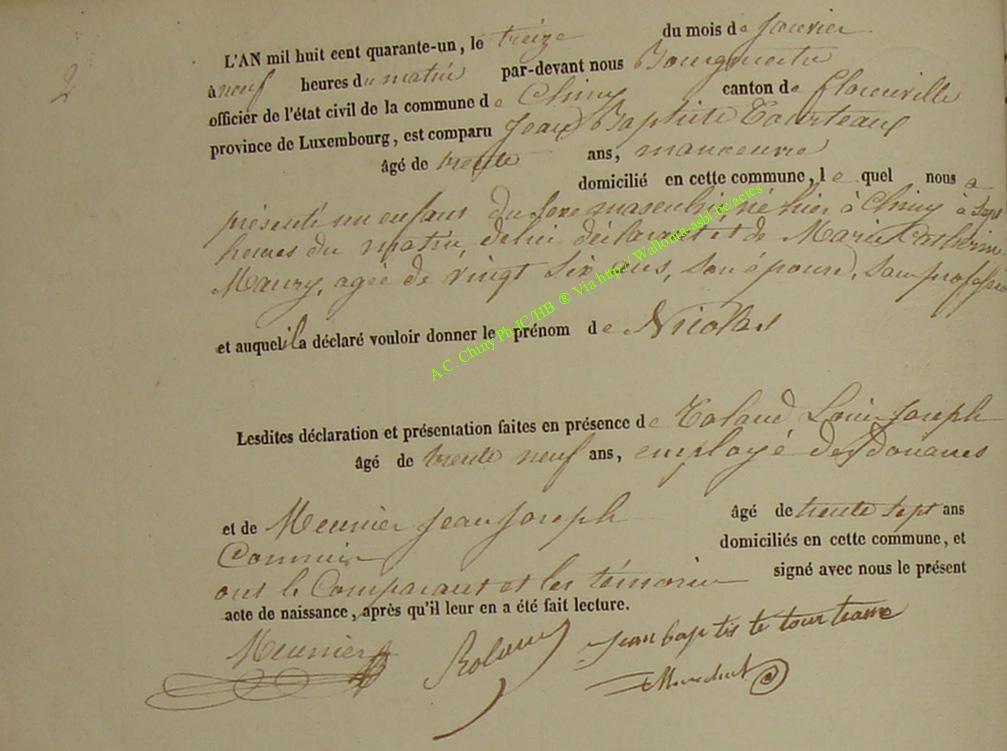 2
L'AN mil huit cent quarante-un, le treize du mois de Janvier
à neuf heures du matin par-devant nous
officier de l'état civil de la commune de Chiny canton de florenville
province de Luxembourg, est comparu Jean Baptiste Tourteaux
âgé de trente ans, manoeuvre
domicilié en cette commune, le quel nous a
présenté un enfant du sexe masculin, né hier à Chiny à Sept
heures du matin, de lui déclarant et de Marie Catherine
Maury, agée de vingt six ans, son épouse, sans profession
et auquel il a déclaré vouloir donner le prénom de Nicolas
Lesdites déclaration et présentation faites en présence de Louis Joseph
âgé de trente neuf ans, employé des Douanes
et de Meunier Jean Joseph âgé de trente sept ans
domiciliés en cette commune, et
ont le Comparant et les témoins signé avec nous le présent
acte de naissance, après qu'il leur en a été fait lecture.
Meunier Jean baptiste
A.C. Chiny Ph JC/HB ® Via http:/ Wallonia-asbl be/actes